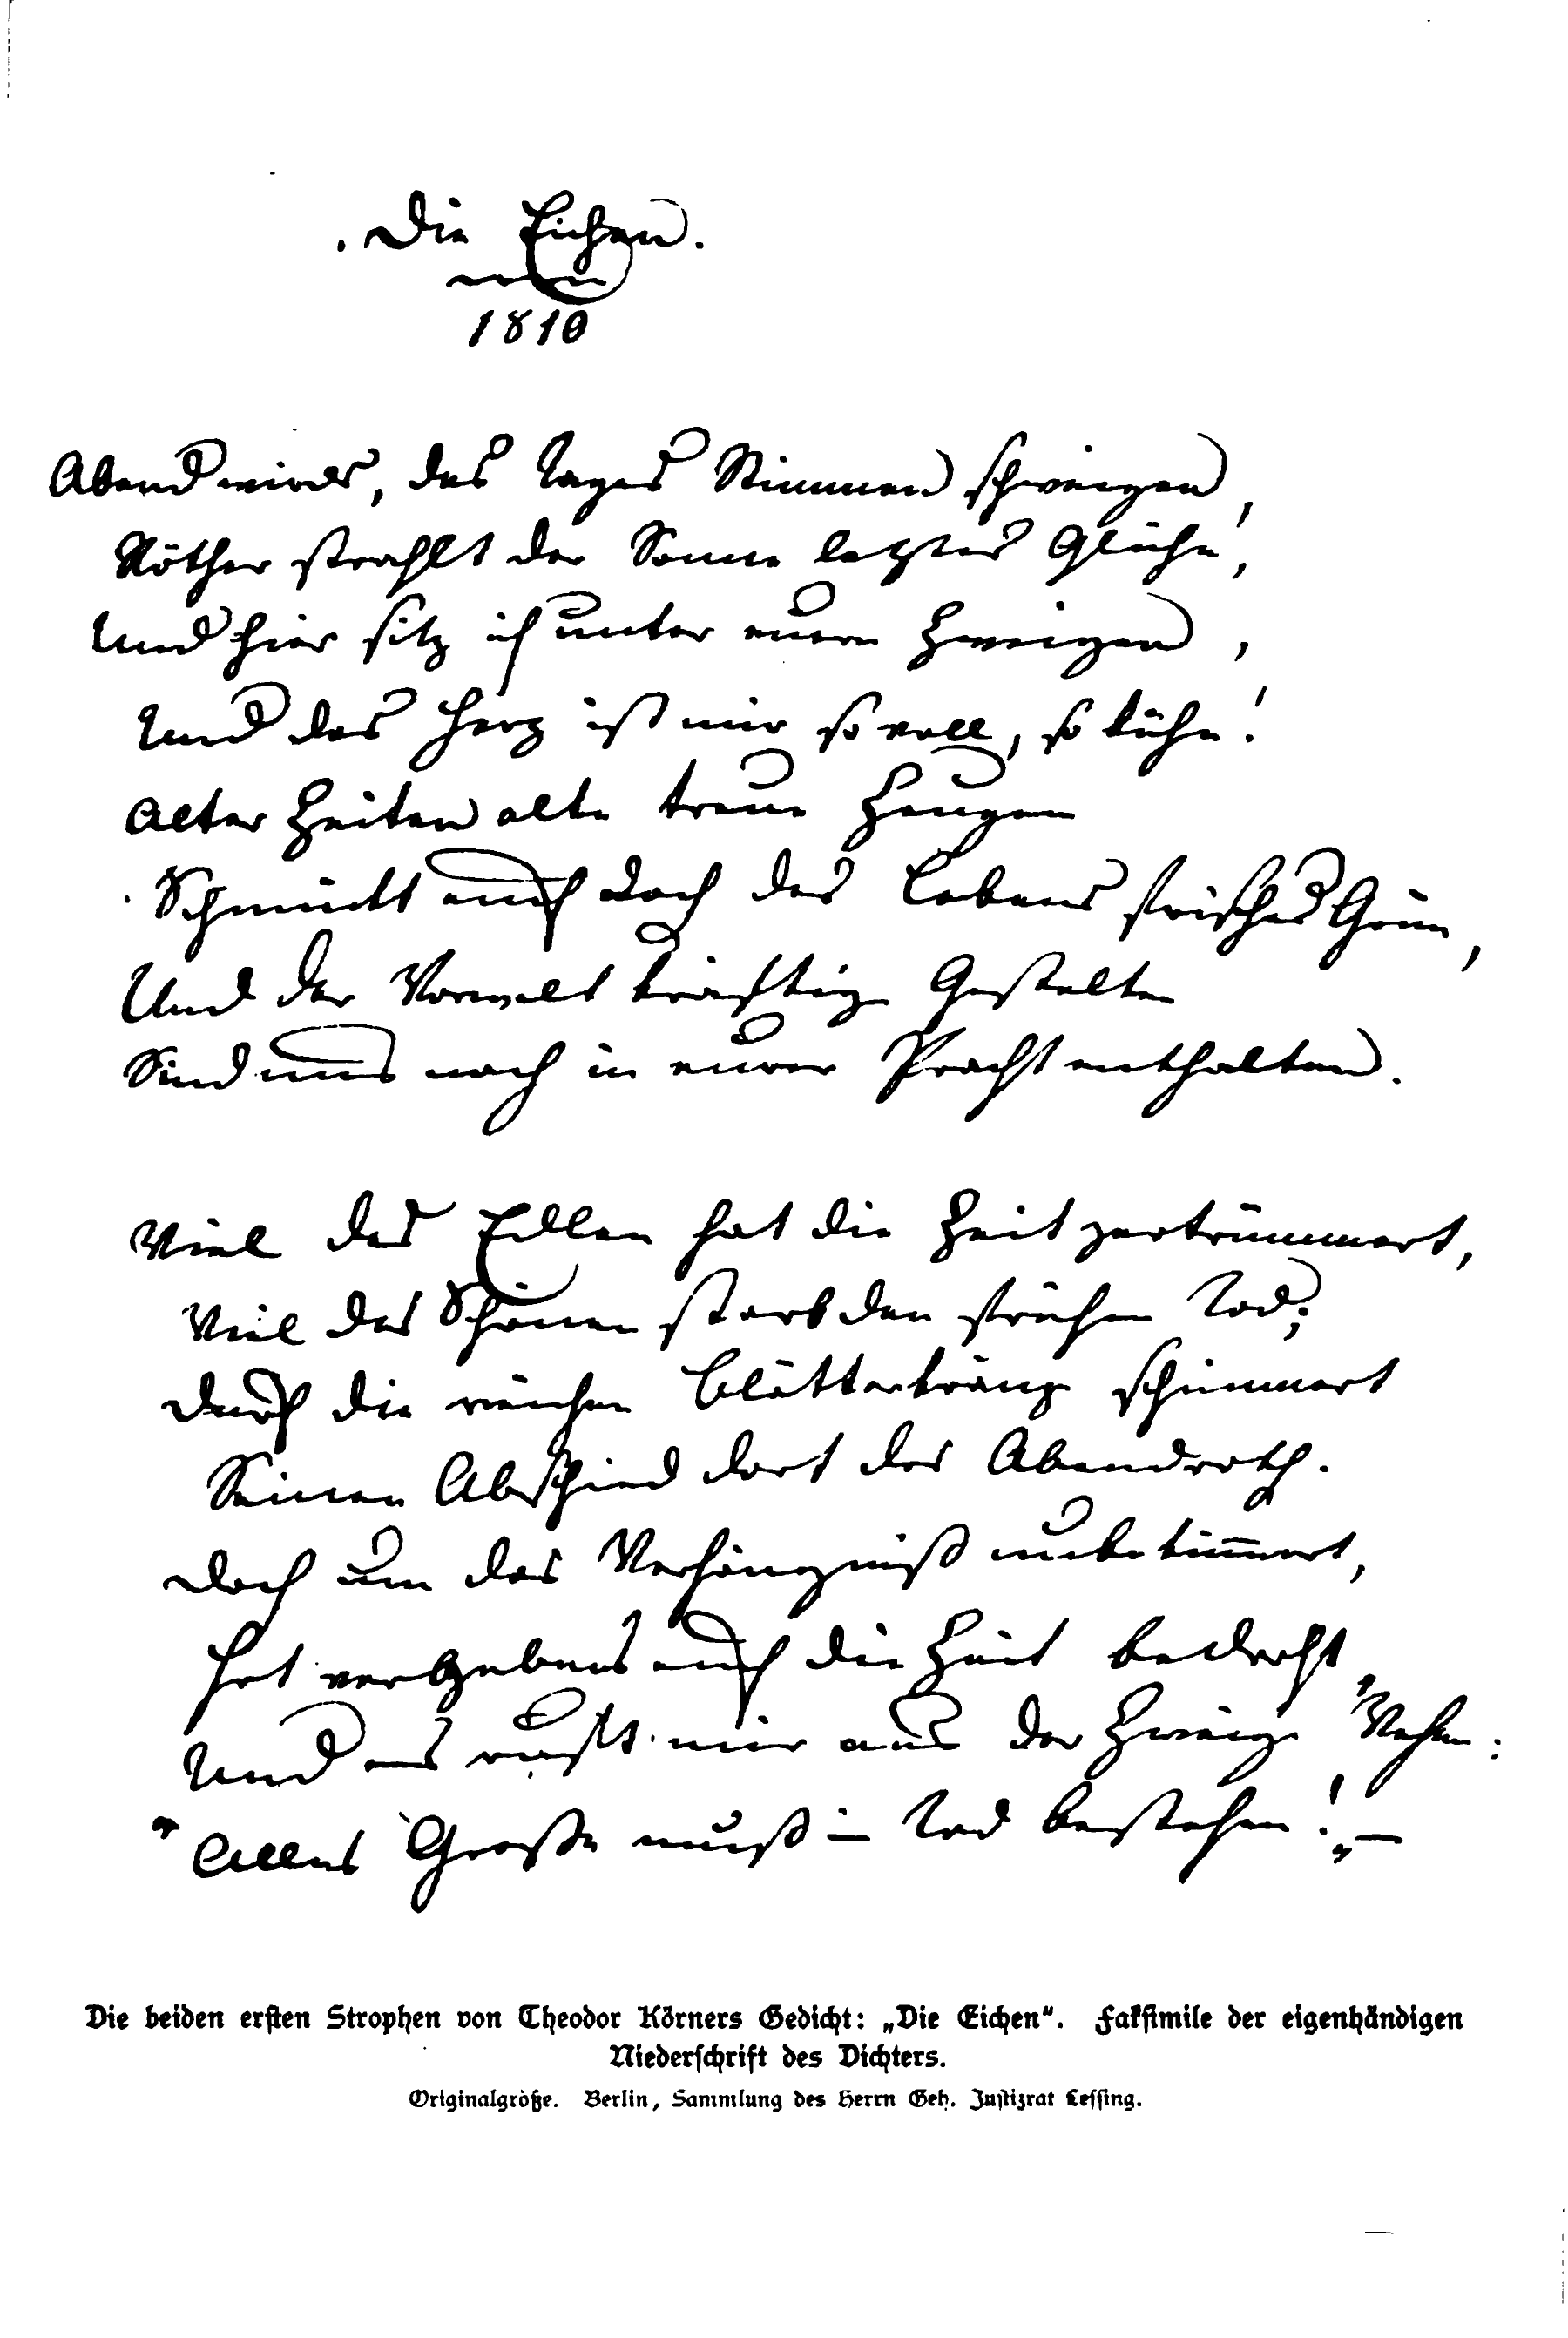 Die Eichen.
1810
Abend wirds, des Tages Stimmen schweigen,
Röther strahlt der Sonne letztes Glühn,
Und hier sitz ich unter euern Zweigen,
Und das Herz ist mir so voll, so kühn!
Alter Zeiten alte treue Zeugen
Schmückt euch doch des Lebens frisches Grün,
Und der Vorwelt kräftige Gestalten
Sind uns noch in eurer Pracht enthalten.
Viel des Edlen hat die Zeit zertrümmert,
Viel des Schönen starb den frühen Tod;
Durch die reichen Blätterkränze schimmert
Seinen Abschied dort das Abendroth.
Doch um das Verhängniß unbekümmert,
Hat vergebens euch die Zeit bedroht,
Und es ruft mir aus der Zweige Wehen:
"Alles Große muß im Tod bestehen!" —
Die beiden ersten Strophen von Theodor Körners Gedicht: „Die Eichen“. Faksimile der eigenhändigen
Niederschrift des Dichters.
Originalgröße. Berlin, Sammlung des Herrn Geh. Justizrat Lessing.